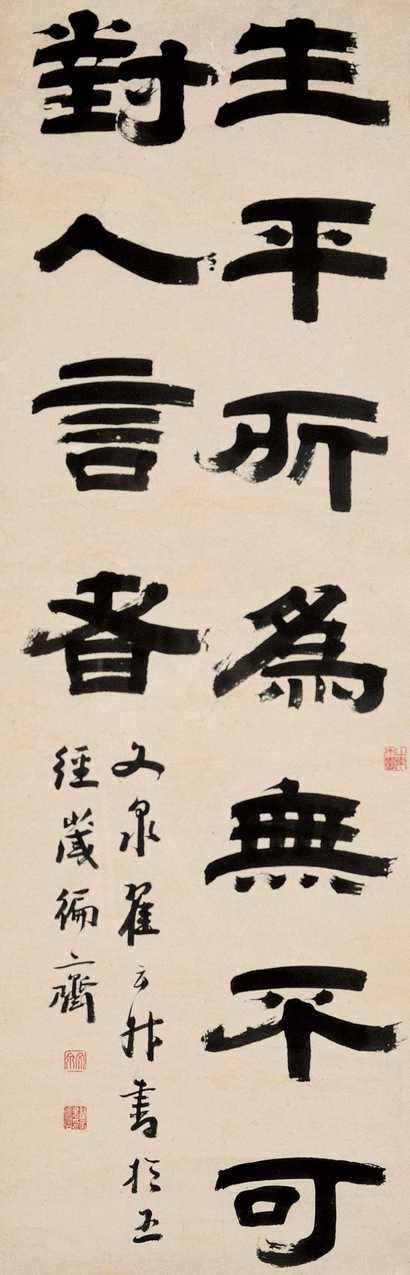 生平所為無不可
對人言者
文泉翟云升書於五
經歲徧之齋